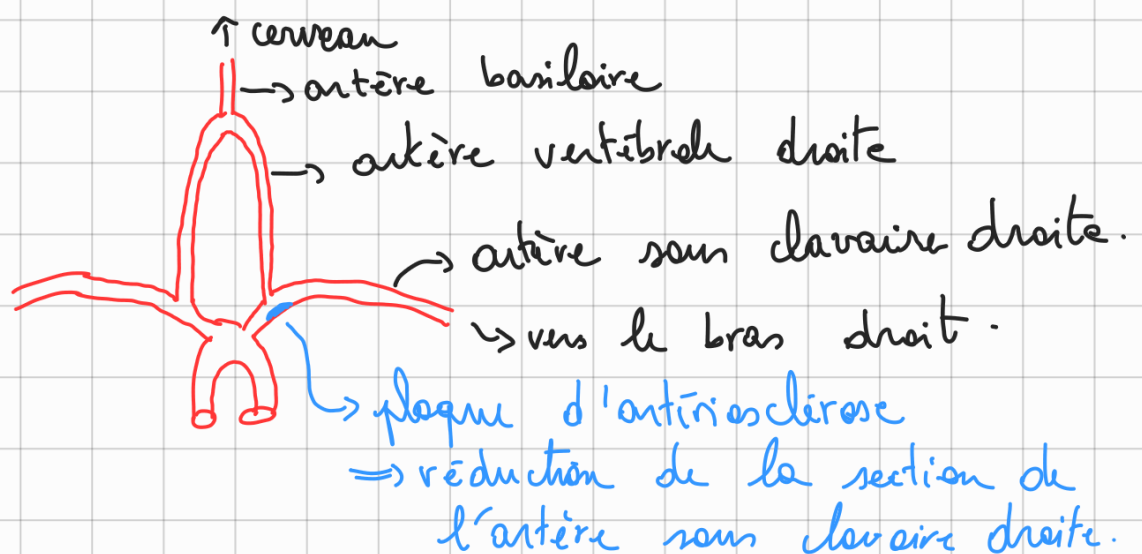 ↑ cerveau
→ artère basilaire
→ artère vertébrale droite
→ artère sous clavaire droite.
↳ vers le bras droit.
→ plaque d'artériosclérose
⇒ réduction de la section de
l'artère sous clavaire droite.